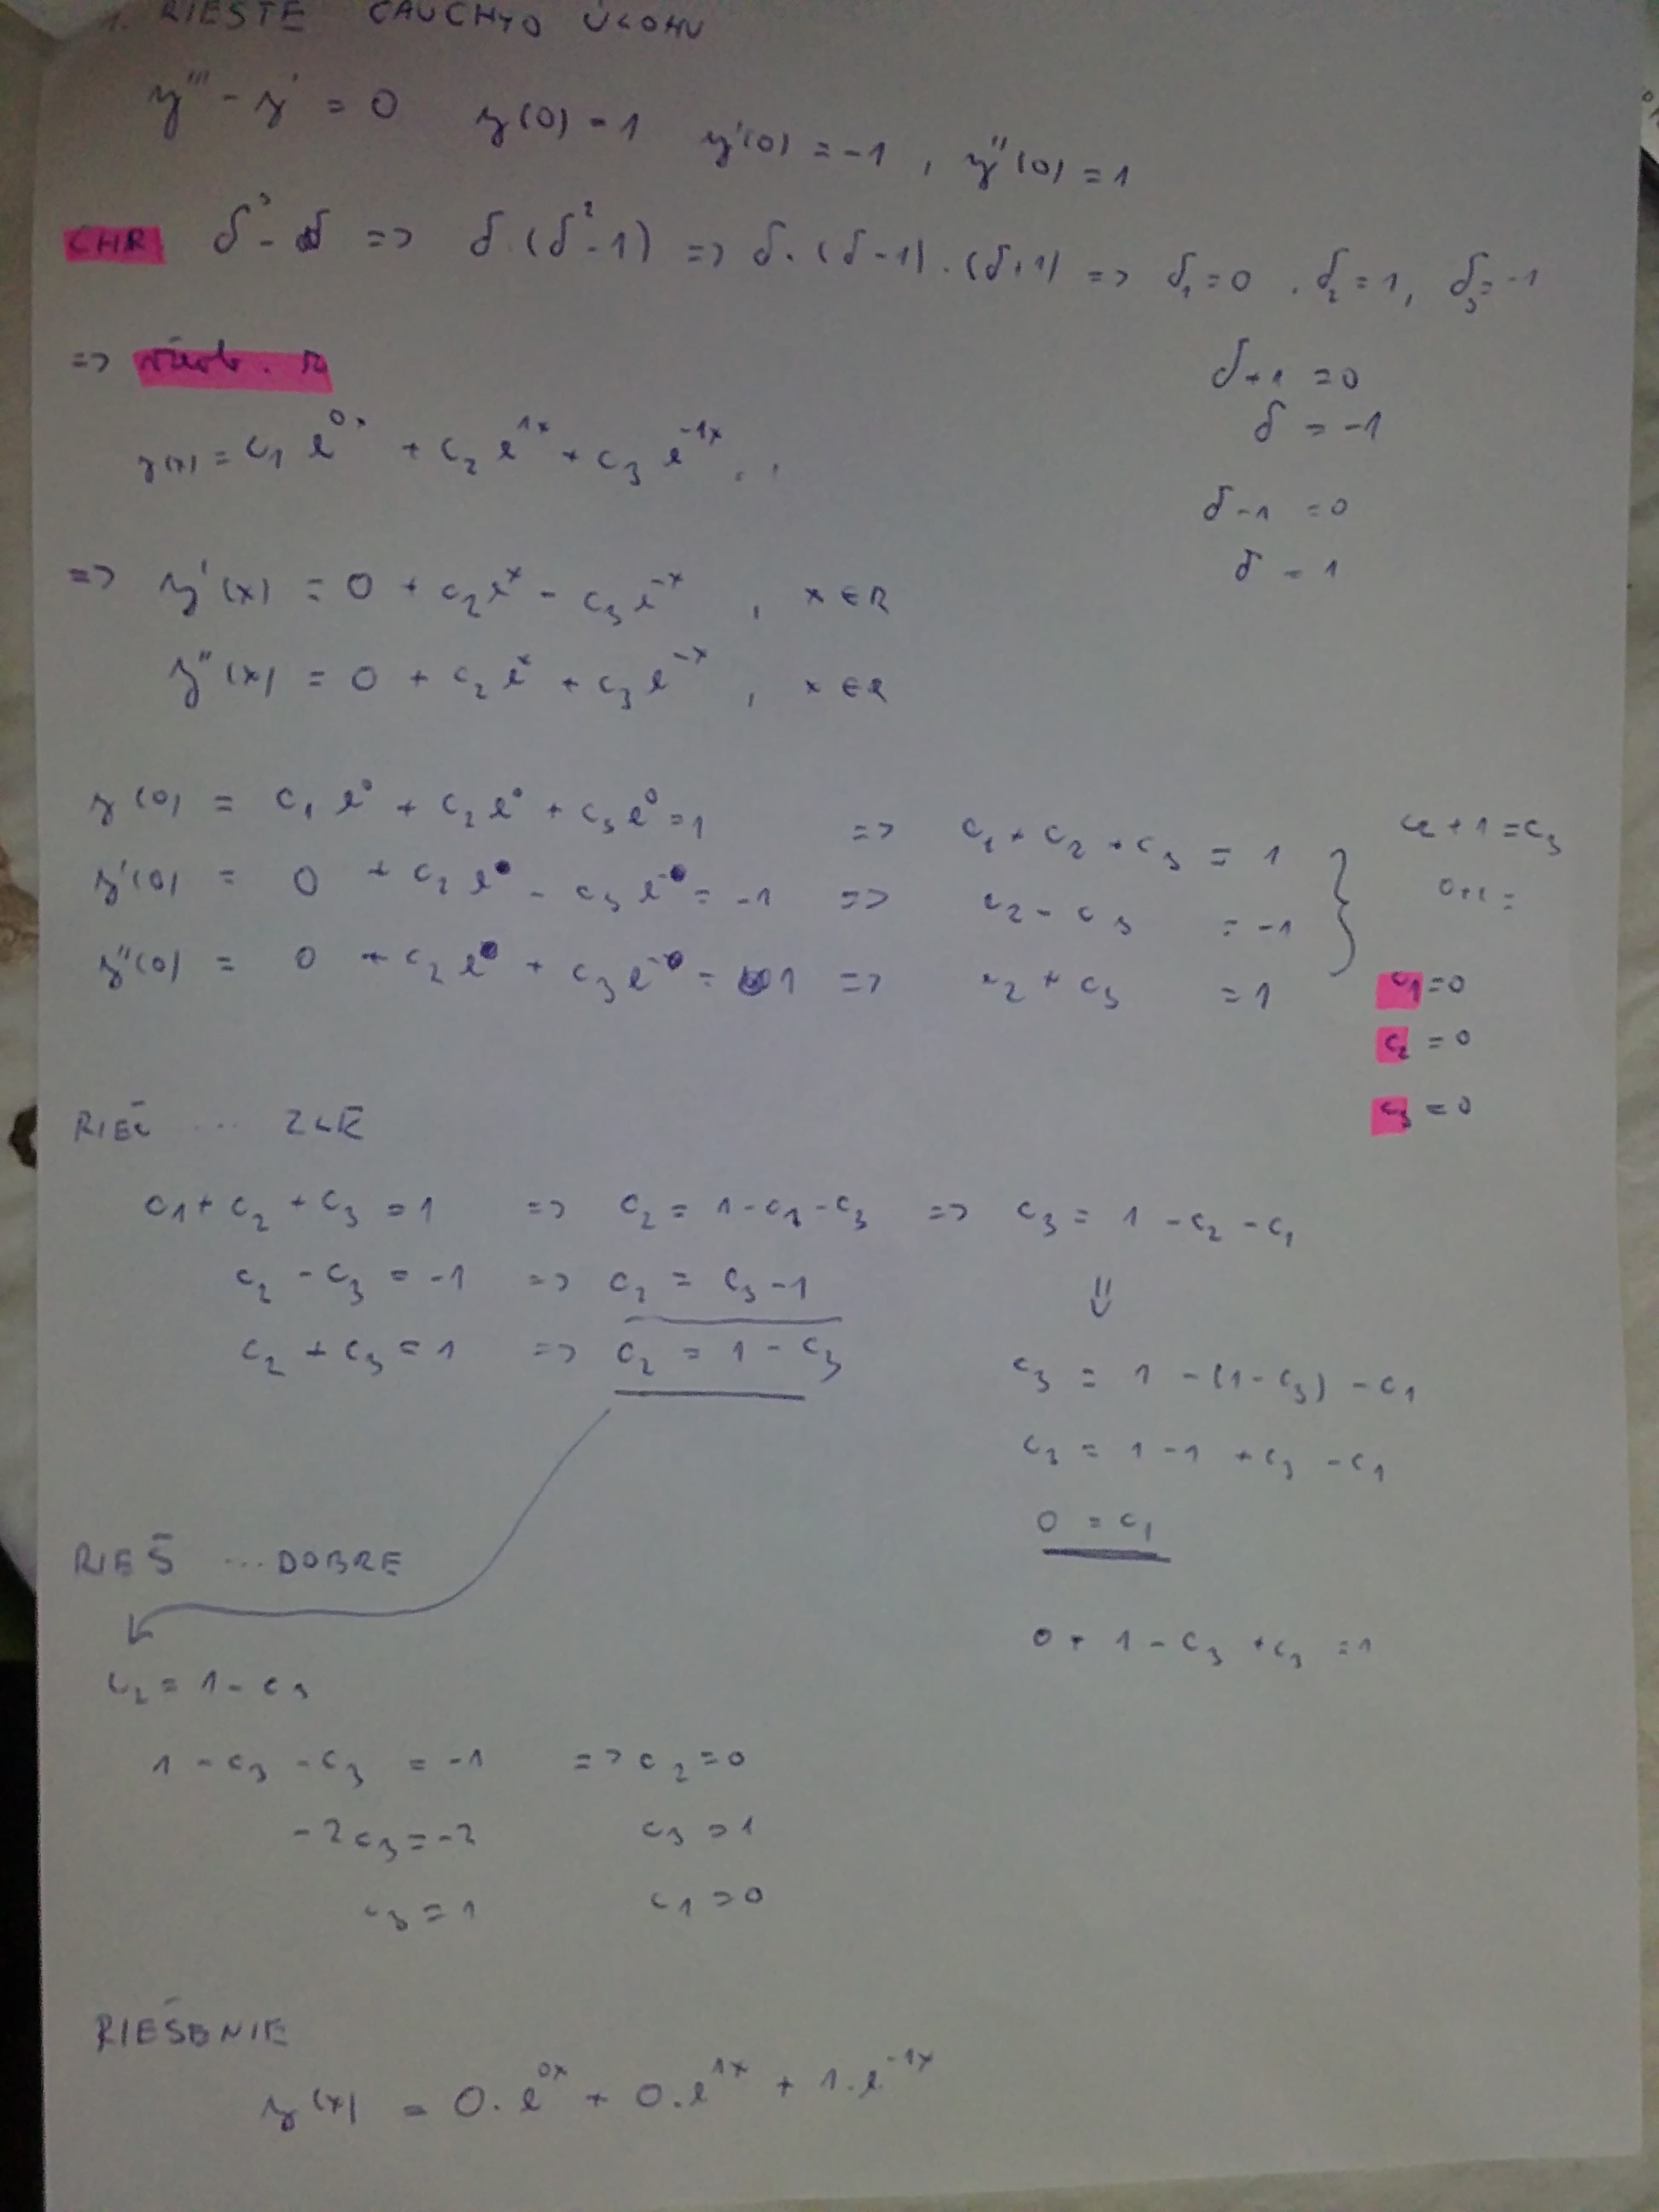 1. RIEŠTE CAUCHYO ÚLOHU
y''' - y' = 0 y(0) = 1 y'(0) = -1 , y''(0) = 1
CHR δ³ - δ => δ.(δ²-1) => δ.(δ-1).(δ+1) => δ₁=0 , δ₂=1, δ₃=-1
=>
δ+1 = 0
δ = -1
y(x) = c₁ e^0x + c₂ e^1x + c₃ e^-1x
δ-1 = 0
δ = 1
=> y'(x) = 0 + c₂e^x - c₃e^-x , x ∈ R
y''(x) = 0 + c₂e^x + c₃e^-x , x ∈ R
y(0) = c₁e⁰ + c₂e⁰ + c₃e⁰ = 1 => c₁ + c₂ + c₃ = 1 } c₂ + 1 = c₃
y'(0) = 0 + c₂e⁰ - c₃e^-0 = -1 => c₂ - c₃ = -1 0+1 =
y''(0) = 0 + c₂e⁰ + c₃e^-0 = 1 => c₂ + c₃ = 1 c₁ = 0
c₂ = 0
c₃ = 0
RIEŠ ... ZLE
c₁ + c₂ + c₃ = 1 => c₂ = 1 - c₁ - c₃ => c₃ = 1 - c₂ - c₁
c₂ - c₃ = -1 => c₂ = c₃ - 1 ⇓
c₂ + c₃ = 1 => c₂ = 1 - c₃
c₃ = 1 - (1 - c₃) - c₁
c₃ = 1 - 1 + c₃ - c₁
0 = c₁
RIEŠ ... DOBRE
0 + 1 - c₃ + c₃ = 1
c₂ = 1 - c₃
1 - c₃ - c₃ = -1 => c₂ = 0
-2c₃ = -2 c₃ = 1
c₃ = 1 c₁ = 0
RIEŠENIE
y(x) = 0.e^0x + 0.e^1x + 1.e^-1x